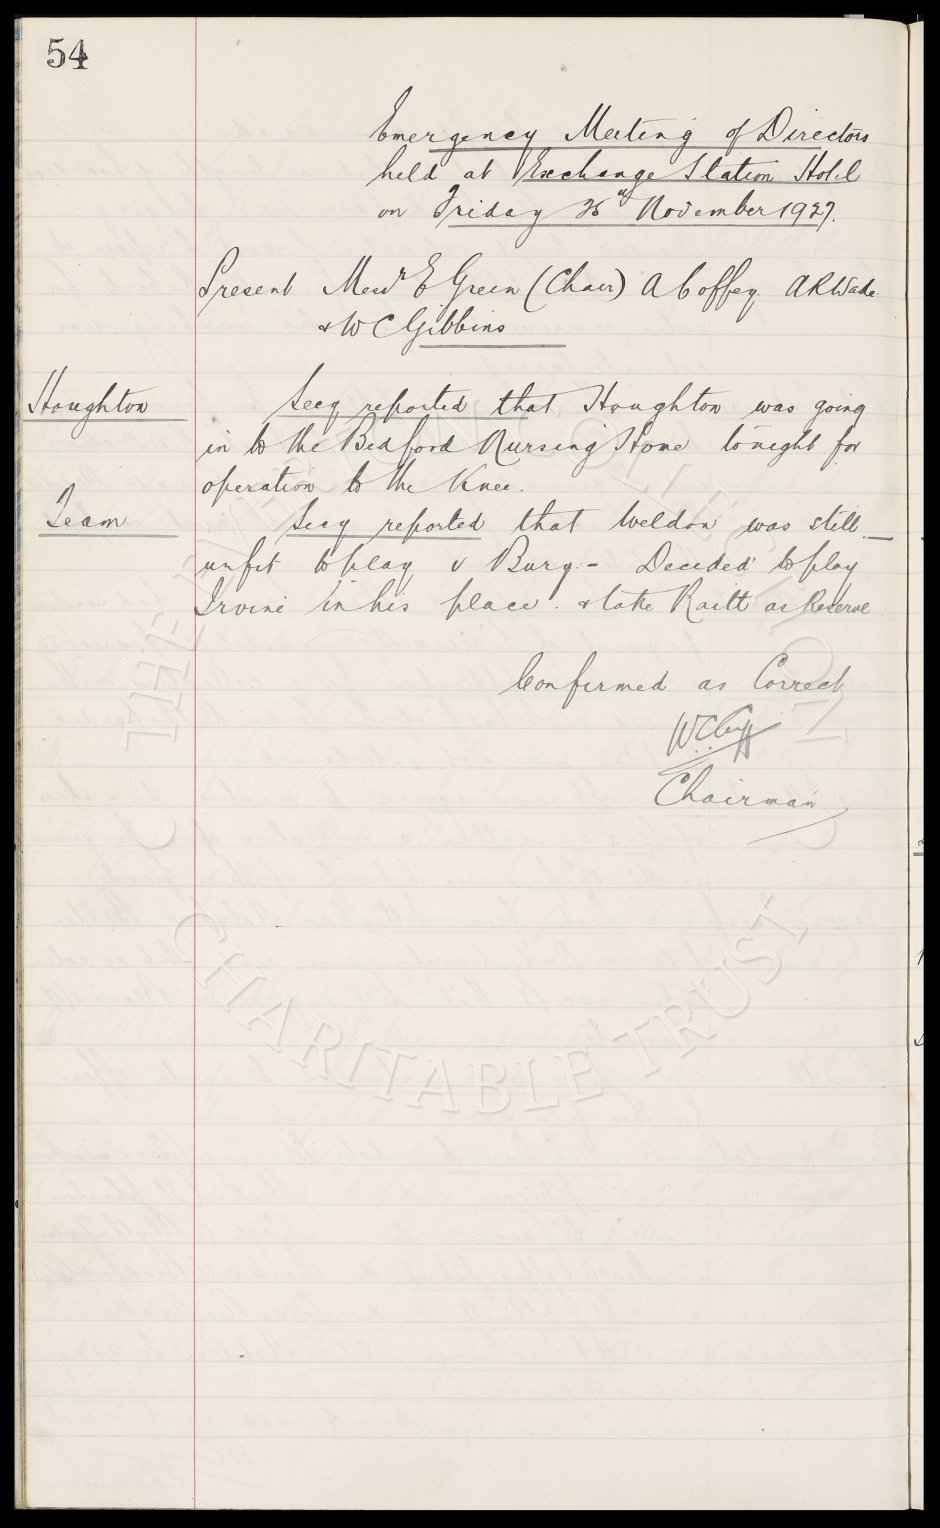 54
Emergency Meeting of Directors
held at Exchange Station Hotel
on Friday 25th November 1927.
Present Messrs E Green (Chair) A Coffey. A R Wade
& W C Gibbins
Houghton
Secy reported that Houghton was going
in to the Bedford Nursing Home tonight for
operation to the Knee.
Team
Secy reported that Weldon was still
unfit to play v Bury. - Decided to play
Irvine in his place. & take Raitt as Reserve
Confirmed as Correct
W.C. Cuff
Chairman
THE EVERTON COLLECTION
CHARITABLE TRUST